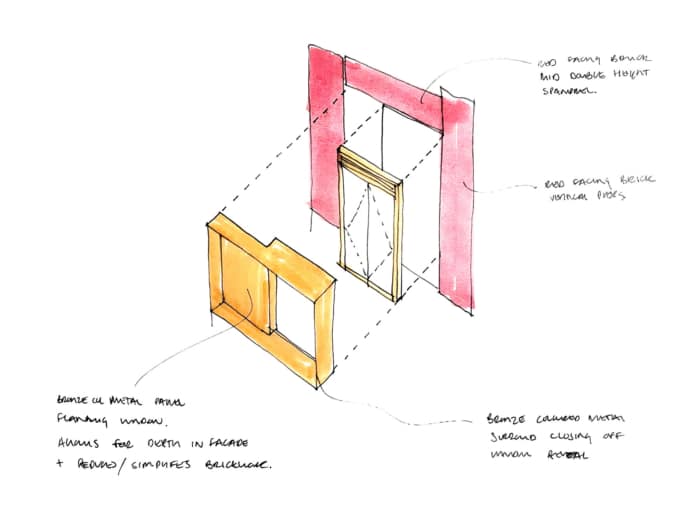 RED FACING BRICK
MID DOUBLE HEIGHT
SPANDREL.
RED FACING BRICK
VERTICAL PIERS
BRONZE COL METAL PANEL
FLANKING WINDOW.
ALLOWS FOR DEPTH IN FACADE
+ REDUCES/SIMPLIFIES BRICKWORK.
BRONZE COLOURED METAL
SURROUND CLOSING OFF
WINDOW REVEAL